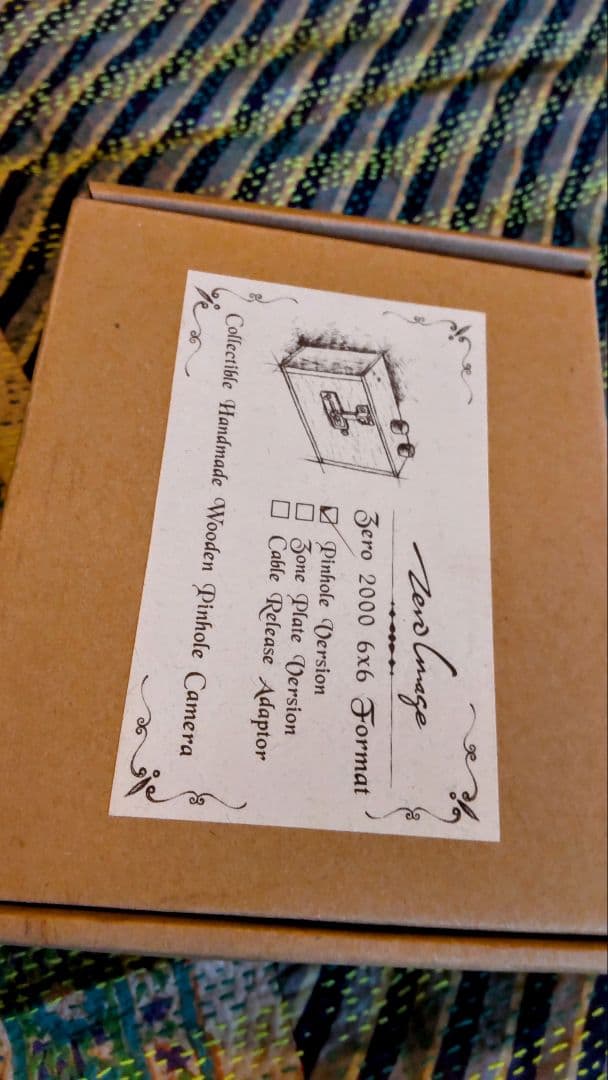 Zero Image
Zero 2000 6x6 Format
Pinhole Version
Zone Plate Version
Cable Release Adaptor
Collectible Handmade Wooden Pinhole Camera